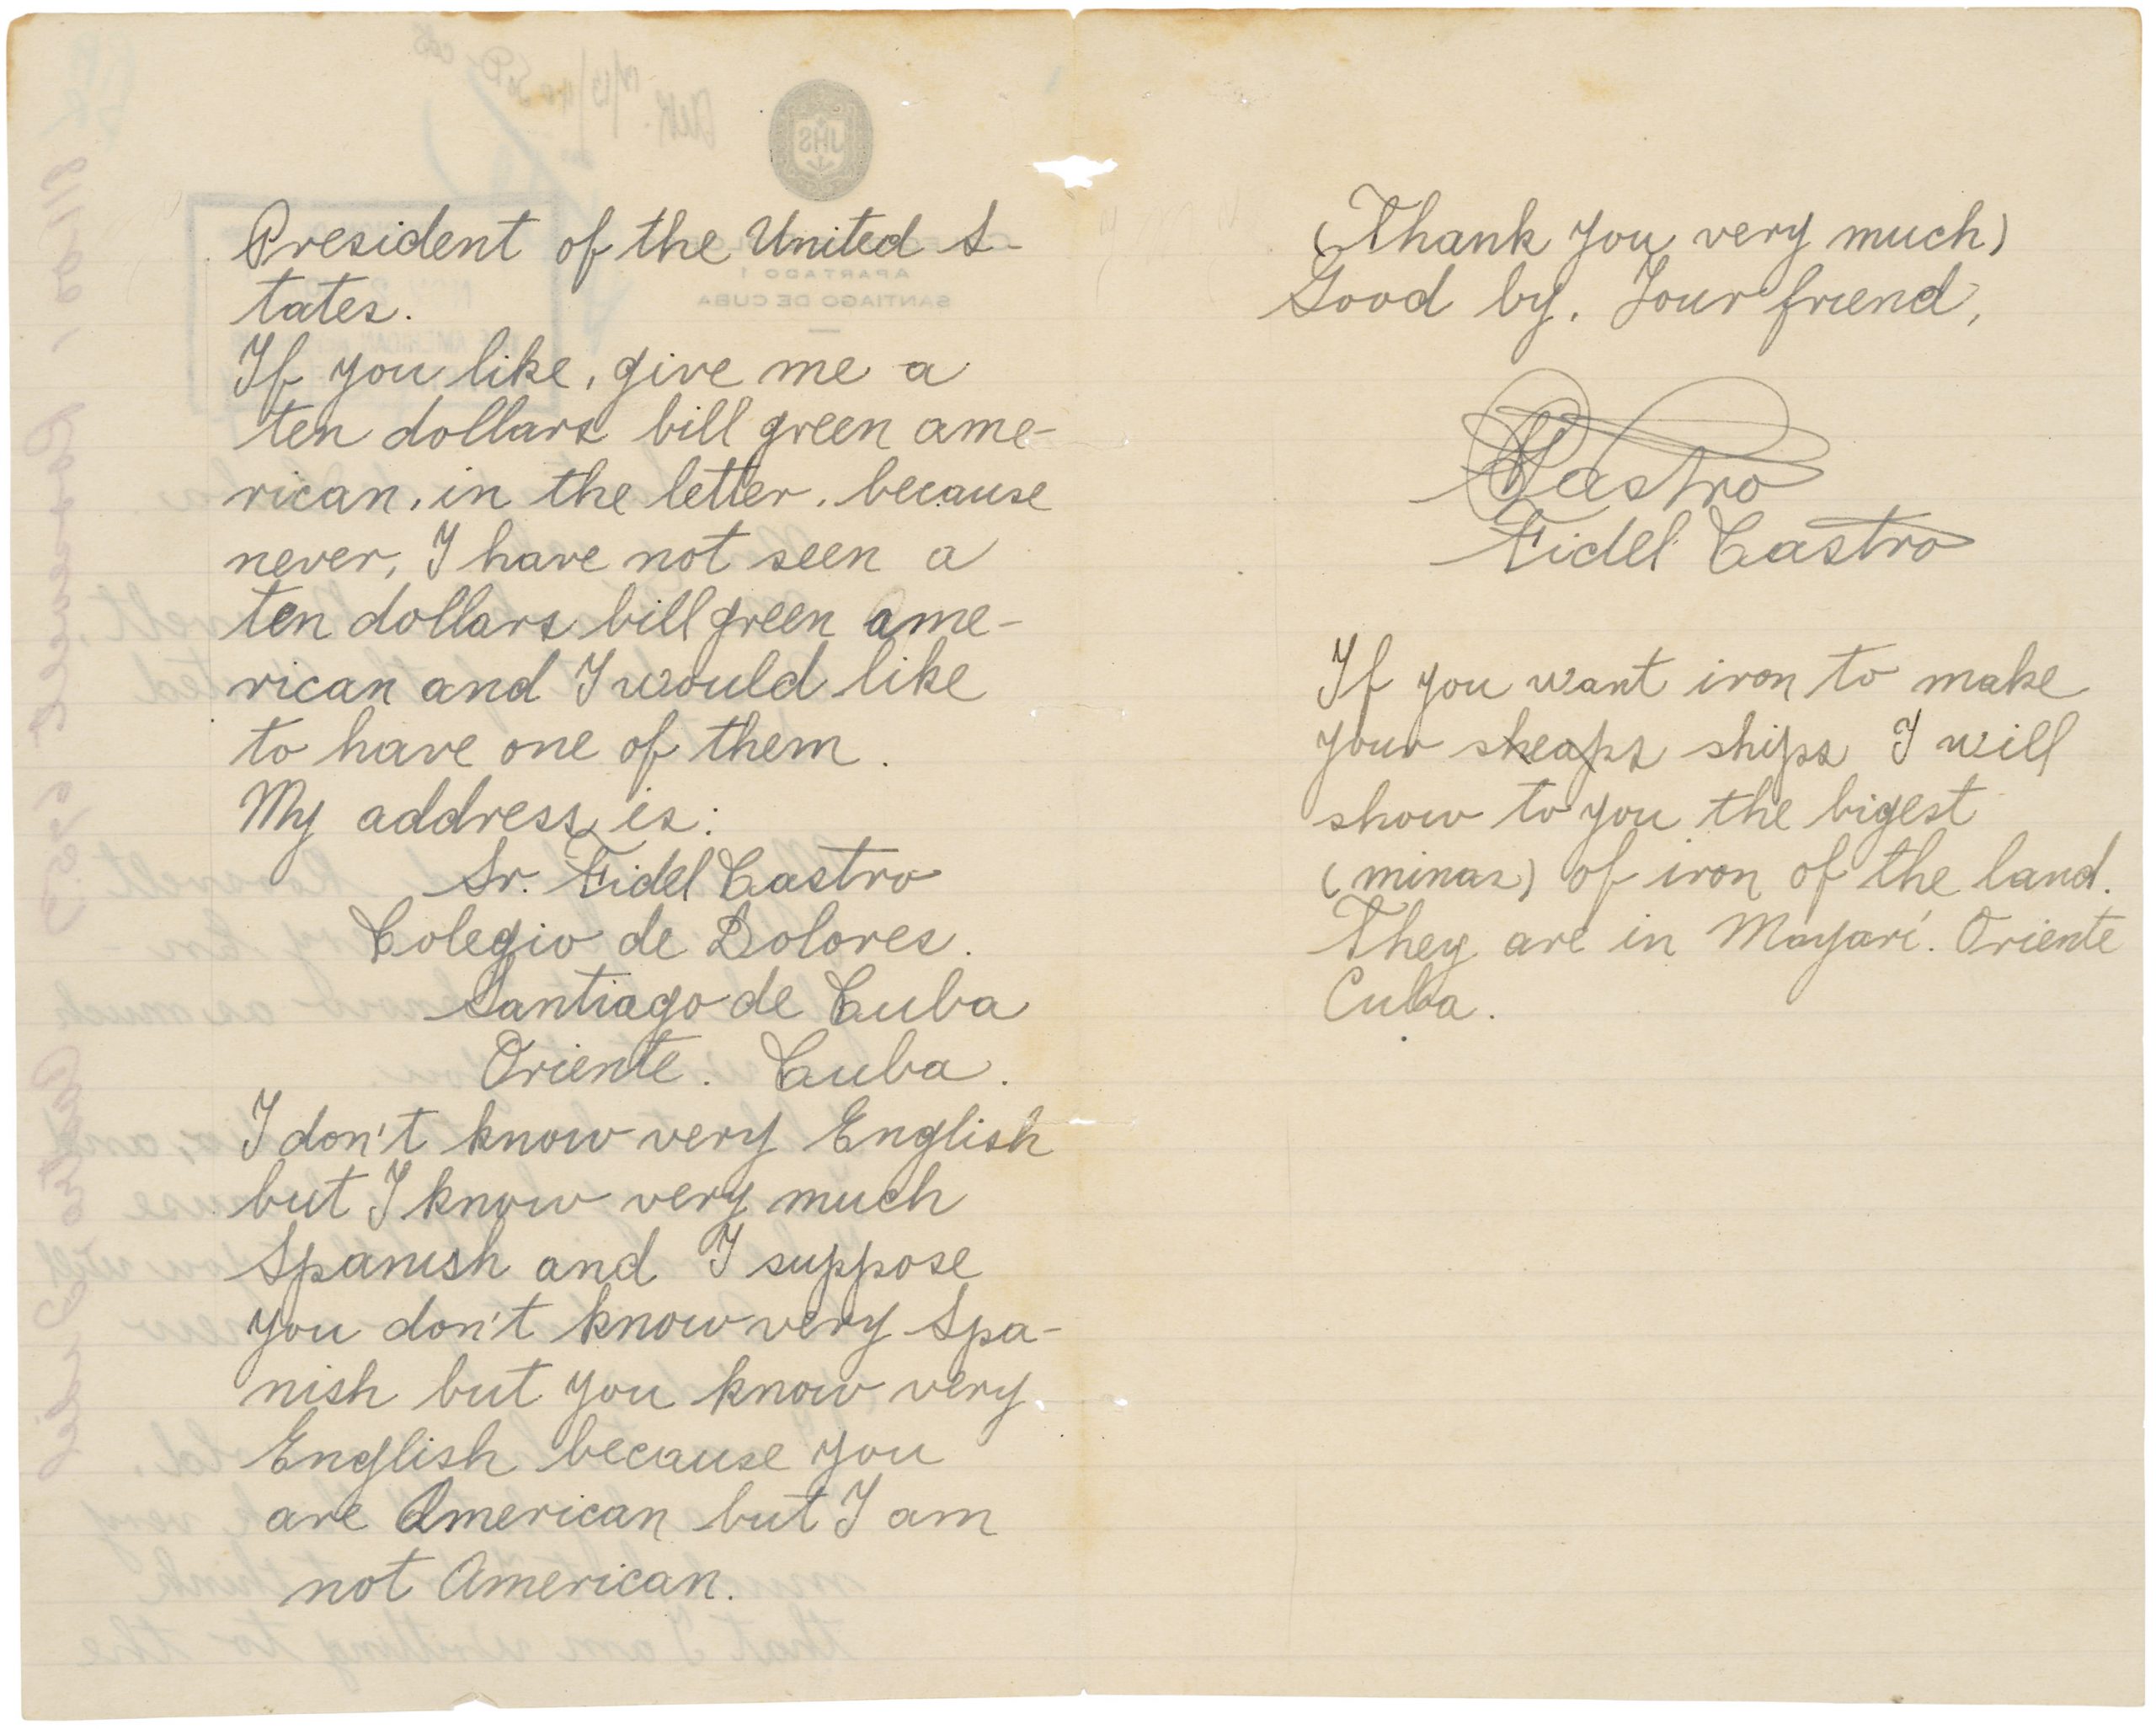 President of the United S-
tates.
If you like, give me a
ten dollars bill green ame-
rican, in the letter, because
never, I have not seen a
ten dollars bill green ame-
rican and I would like
to have one of them.
My address is:
Sr. Fidel Castro
Colegio de Dolores.
Santiago de Cuba
Oriente. Cuba.
I don't know very English
but I know very much
Spanish and I suppose
you don't know very Spa-
nish but you know very
English because you
are American but I am
not American.
(Thank you very much)
Good by. Your friend,
Castro
Fidel Castro
If you want iron to make
your sheaps ships I will
show to you the bigest
(minas) of iron of the land.
They are in Mayarí. Oriente
Cuba.
JHS
APARTADO 1
SANTIAGO DE CUBA